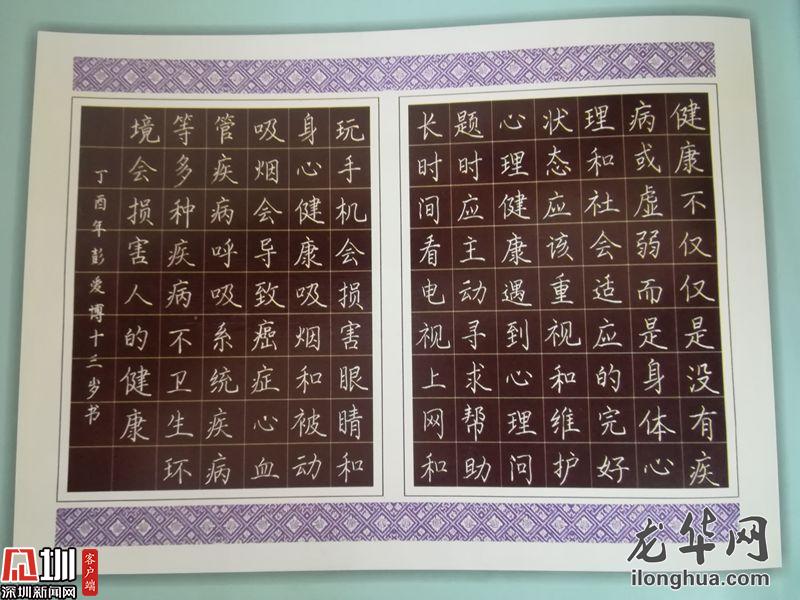 健康不仅仅是没有疾
病或虚弱而是身体心
理和社会适应的完好
状态应该重视和维护
心理健康遇到心理问
题时应主动寻求帮助
长时间看电视上网和
玩手机会损害眼睛和
身心健康吸烟和被动
吸烟会导致癌症心血
管疾病呼吸系统疾病
等多种疾病不卫生环
境会损害人的健康
丁酉年彭爱博十三岁书
圳
客户端
深圳新闻网
龙华网
ilonghua.com